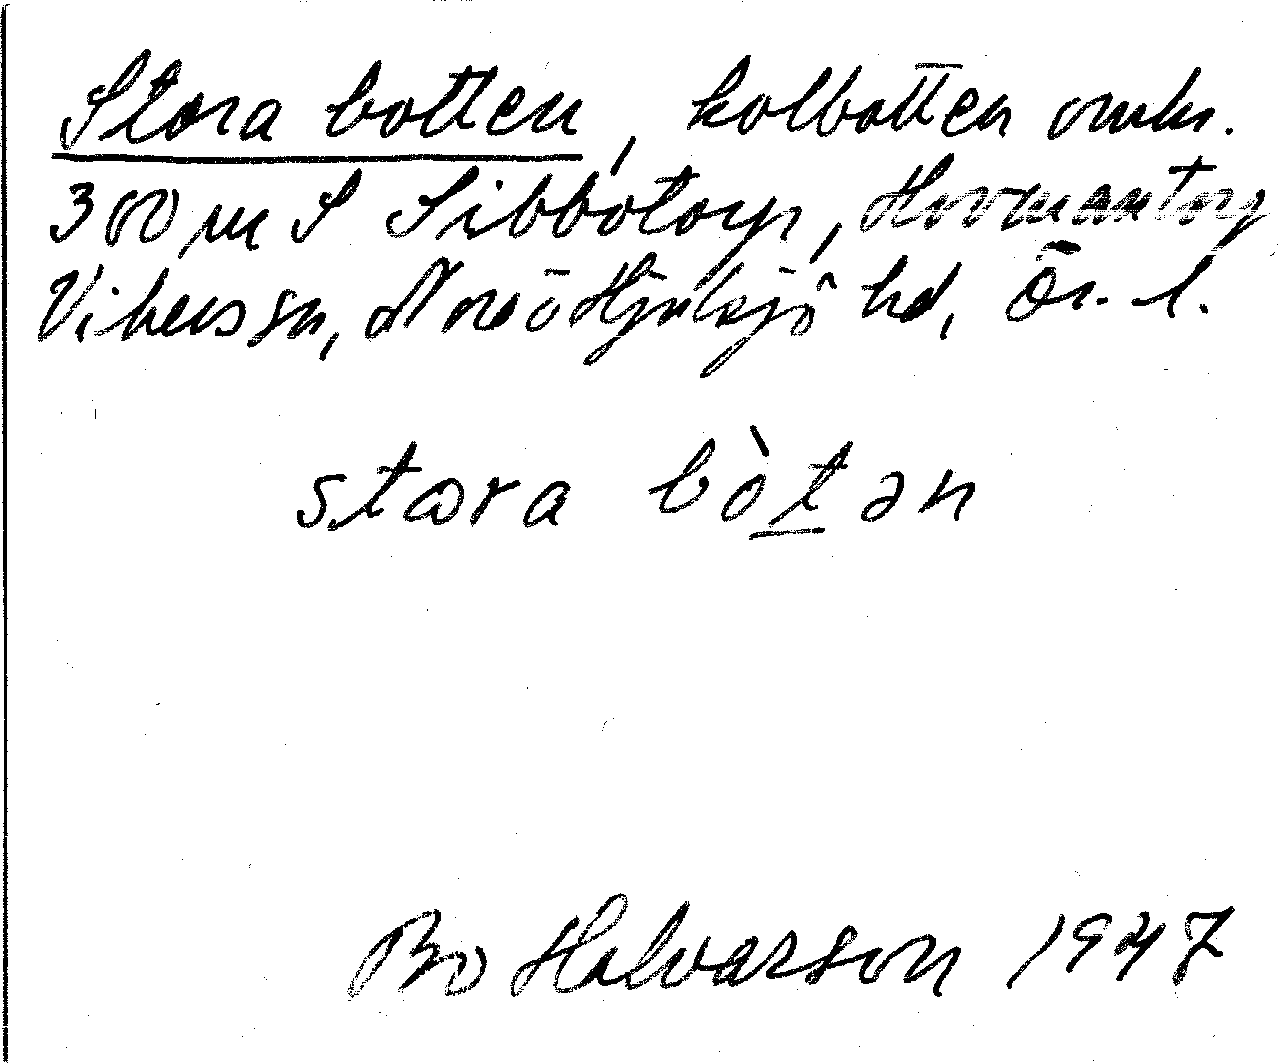 Stora botten, kolbotten omkr.
300 m S Sibbotorp, Hovmantorp
Vikers sn, Nora o Hjulsjö hd, Ör. l.
stɷra bòt̠ən
Bo Halvarson 1947